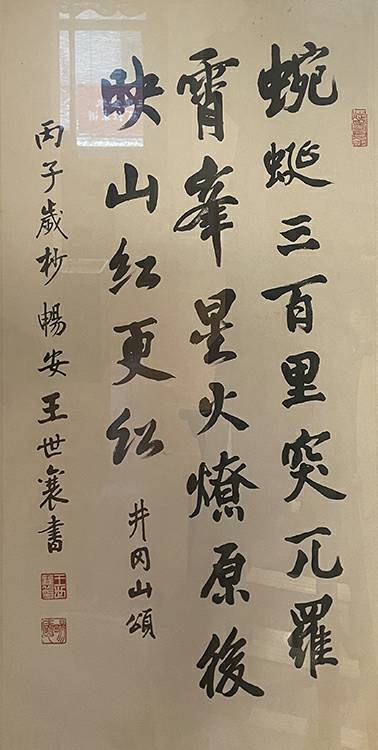 蜿蜒三百里突兀羅
霄峯星火燎原後
映山紅更紅
井冈山頌
丙子歲杪暢安王世襄書